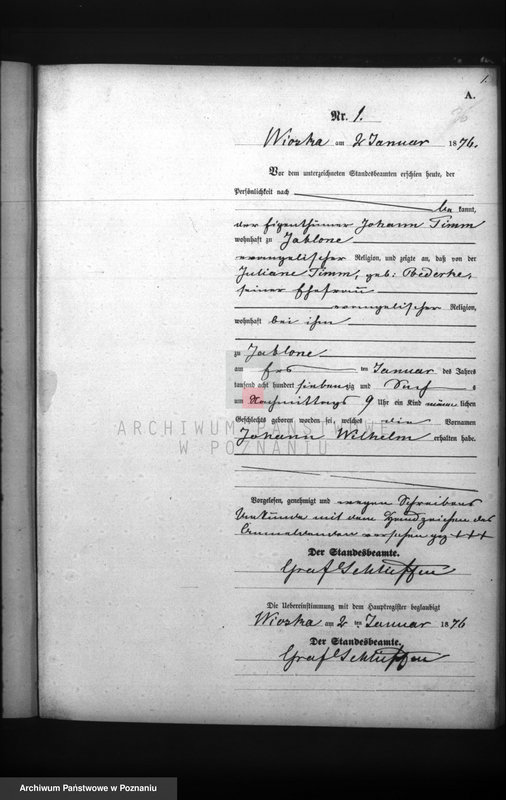 1.
A.
Nr. 1.
Wioska am 2 Januar 1876.
Vor dem unterzeichneten Standesbeamten erschien heute, der
Persönlichkeit nach
be kannt,
der Eigenthümer Johann Timm
wohnhaft zu Jablone
evangelischer Religion, und zeigte an, daß von der
Juliane Timm, geb:
seiner Ehefrau
evangelischer Religion,
wohnhaft bei ihm
zu Jablone
am ten Januar des Jahres
tausend acht hundert siebenzig und s
um Nachmittags 9 Uhr ein Kind männ lichen
Geschlechts geboren worden sei, welches Vornamen
Johann Wilhelm erhalten habe.
ARCHIWUM PAŃSTWOWE
W POZNANIU
Vorgelesen, genehmigt und wegen Schreibens
Unkunde mit dem Handzeichen des
Anmeldenden versehen gez +++
Der Standesbeamte.
Graf Schlieffen
Die Uebereinstimmung mit dem Hauptregister beglaubigt
Wioska am 2 ten Januar 1876
Der Standesbeamte.
Graf Schlieffen
Archiwum Państwowe w Poznaniu